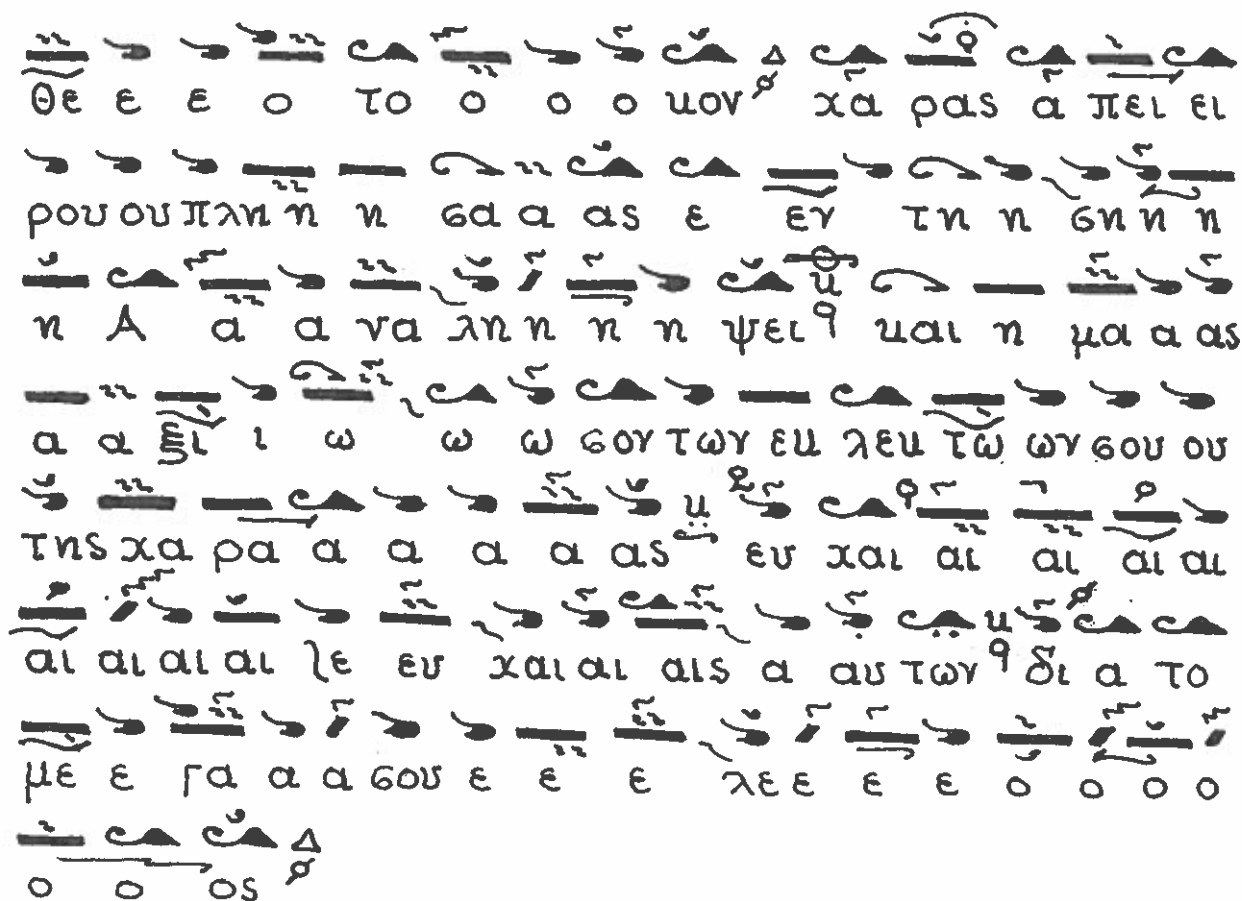 θε ε ε ο το ο ο ο κον χα ρας α πει ει
ρου ου πλη η η σα α ας ε εν τη η ση η η
η Α α α να λη η η η ψει και η μα α ας
α α ξι ι ω ω ω σον των εκ λεκ τω ων σου ου
της χα ρα α α α α ας ευ χαι αι αι αι αι
αι αι αι αι λε ευ χαι αι αις α αυ των δι α το
με ε γα α α σου ε ε ε λε ε ε ε ο ο ο ο
ο ο ος